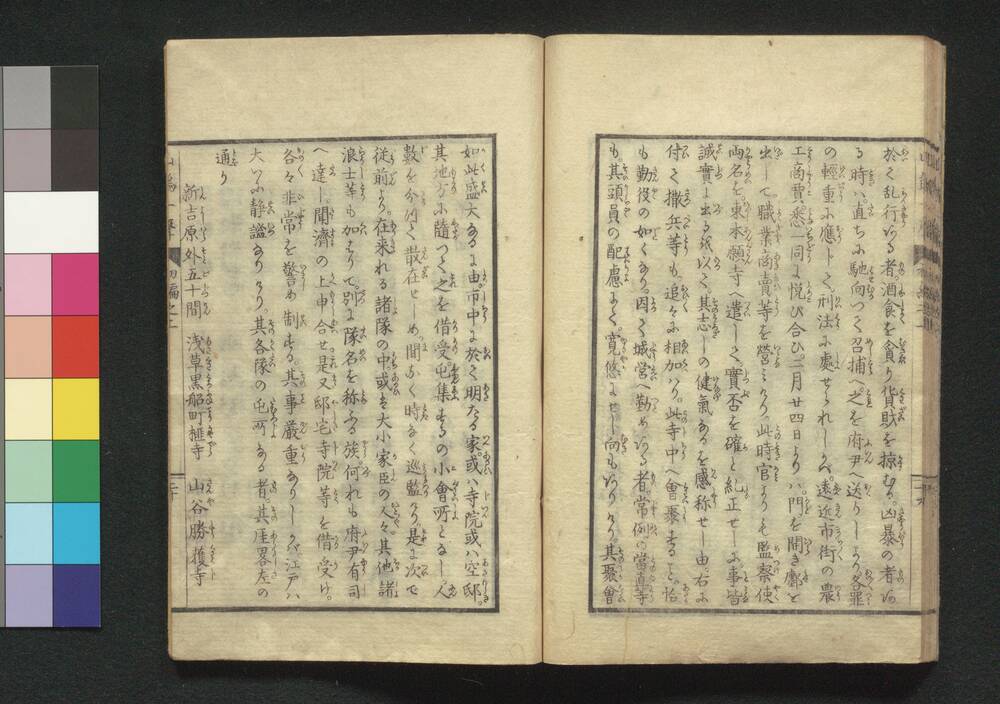 於て乱行ある者。酒食を貪り貨財を掠むる。凶暴の者ある
る時ハ。直ちに馳向つて召捕へ。之を府尹へ送りしより各罪
の輕重に應じて。刑法に處せられしかバ。遠近市街の農
工商賈。悉く一同に悦び合ひ。二月廿四日よりハ。門を開き鄽を
出して。職業商賣等を營ミけり。此時官よりも監察使
両名を東本願寺へ遣して。實否を確と糺正せしに事皆
誠實に出るを以て。其志しの健氣なるを感称せし由。右に
付て撒兵等も追々に相加ハり。此寺中へ會聚する
も勤役の如くなり。因て城営へ勤めある者。常例の當直等
も。其頭員の配慮にて。寛悠にせし向もありけり。其聚會
如此盛大なるに由。市中に於て明たる家。或ハ寺院或ハ空邸。
其地方に隨つて之を借受屯集するの小會所となし人
數を今所て散在せしめ。間なく時なく巡監せり。是に次で
従前より。在来れる諸隊の中或は大小家臣の人々。其他諸
浪士輩も加はりて。別に隊名を称ふる族何れも府尹有司
へ達し。聞濟の上申合せ是又邸宅寺院等を借受け。
各々非常を警め制する。其事厳重なりしかバ。江戸ハ
大いに静謐なりけり。其各隊の屯所なる者。其厓畧左の
通り
新吉原外五十間 浅草黒船町榧寺 山谷勝護寺